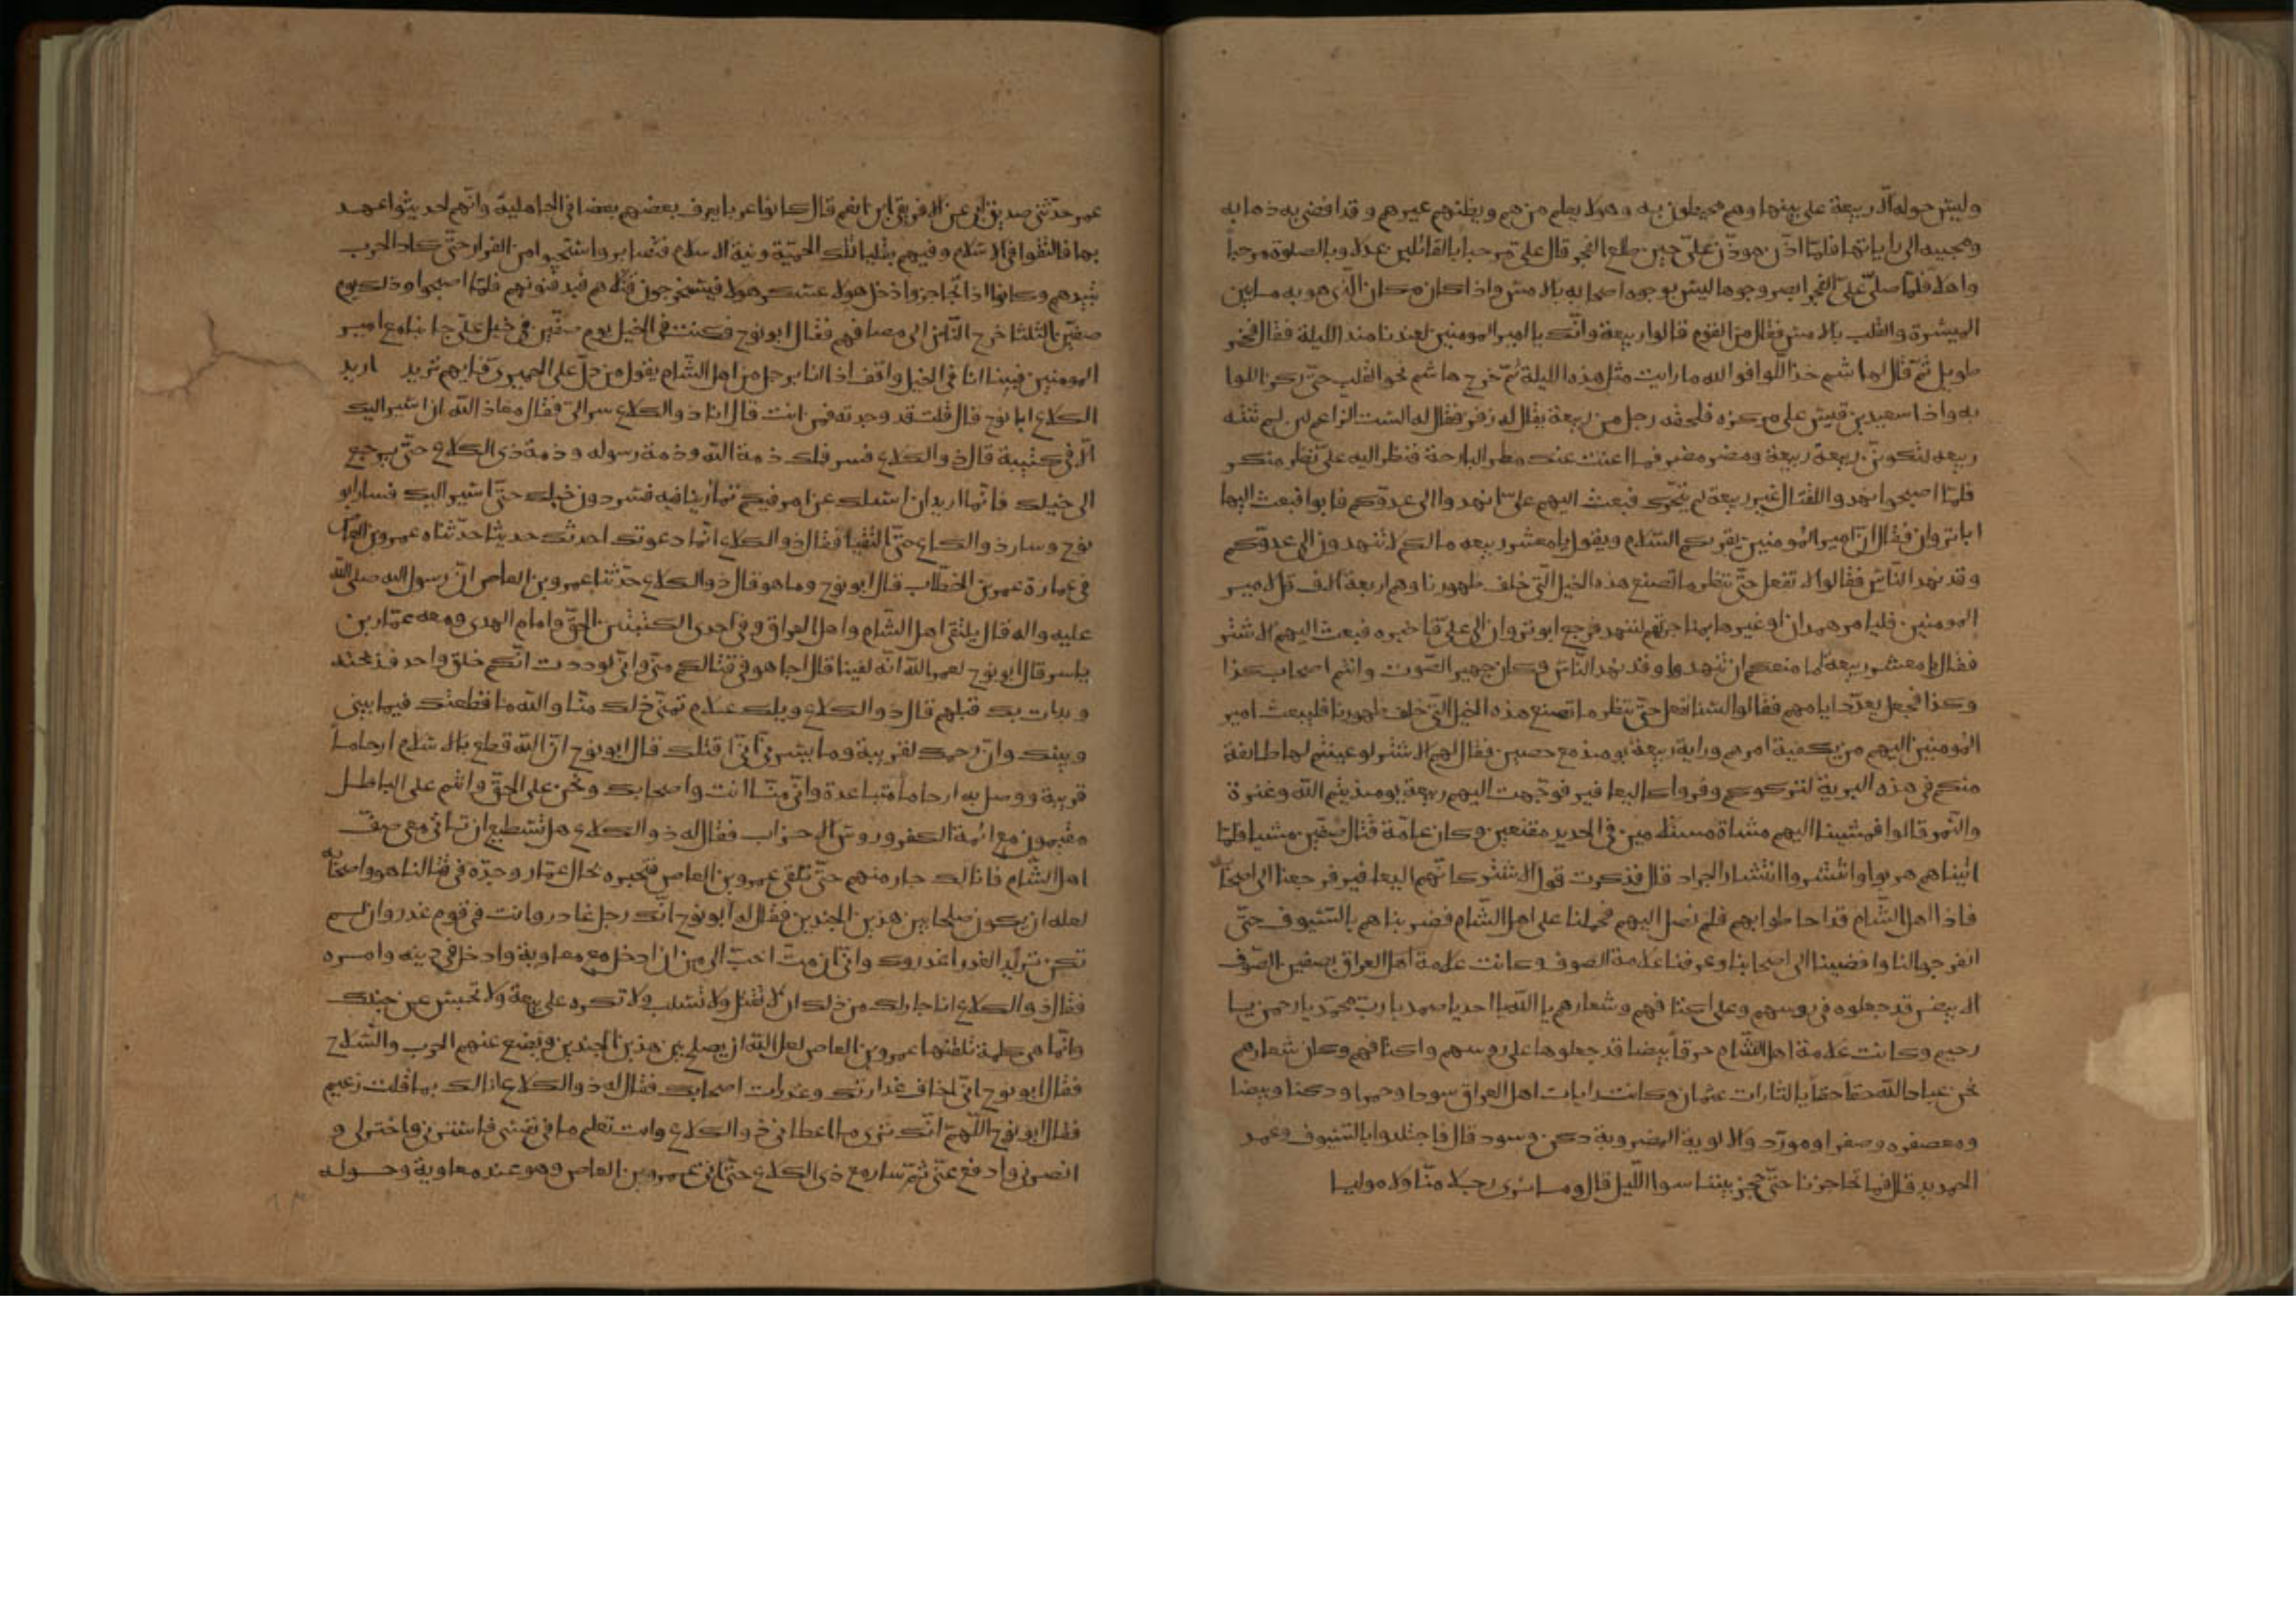 وليس حوله الا ربيعة على بينها وهم محيطون به وهو لا يعلم من هم ويظنهم غيرهم وقد افضى به ذهابه
ومجيه الى راياتها فلما اذن موذن على حين طلع الفجر قال على مرحبا بالقائلين عدلا وبالصلوة مرحبا
واهلا فلما صلى على الفجر ابصر وجوها ليس بوجوه اصحابه بالامس واذا مكان الذى هو به ما بين
الميسرة والقلب بالامس فقال من القوم قالوا ربيعة وانك يا امير المومنين لعندنا منذ الليلة فقال فخر
طويل ثم قال لهاشم خذ اللوا فوالله ما رايت مثل هذه الليلة ثم خرج هاشم نحو القلب حتى ركز اللوا
به واذا سعيد بن قيس على مركزه فلحقه رجل من ربيعة يقال له زفر فقال له الست الزاعم لين لم تنته
ربيعه لتكونن ربيعة ربيعة ومضر مضر فما اغنت عنك مضر البارحة فنظر اليه على نظر منكر
فلما اصبحوا نهدوا للقتال غير ربيعة لم تتحرك فبعث اليهم على ان انهدوا الى عدوكم فابوا فبعث اليها
ابا ثروان فقال ان امير المومنين يقريكم السلام ويقول يا معشر ربيعه ما لكم لا تنهدون الى عدوكم
وقد نهد الناس فقالوا لا نفعل حتى ننظر ما تصنع هذه الخيل التى خلف ظهورنا وهم اربعة الف قل لامير
المومنين فليامر همدان او غيرها بمناجزتهم لننهد فرجع ابو ثروان الى على فاخبره فبعث اليهم الاشتر
فقال يا معشر ربيعة ما منعكم ان تنهدوا وقد نهد الناس وكان جهير الصوت وانتم اصحاب كذا
وكذا فجعل يعدد ايامهم فقالوا لسنا نفعل حتى ننظر ما تصنع هذه الخيل التى خلف ظهورنا فليبعث امير
المومنين اليهم من يكفيه امرهم وراية ربيعة يومئذ مع حصين فقال لهم الاشتر لو عينتم لها طائفة
منكم فى هذه البرية لتركوكم وفروا كاليعافير فوجهت اليهم ربيعة يومئذ تيم الله وعنزة
والنمر قالوا فمشينا اليهم مشاة مستلئمين فى الحديد مقنعين وكان عامة قتال صفين مشيا فلما
اتيناهم هربوا وانتشروا انتشار الجراد قال فذكرت قول الاشتر كانهم اليعافير فرجعنا الى اصحابنا
فاذا اهل الشام قد احاطوا بهم فلم نصل اليهم فحملنا على اهل الشام فضربناهم بالسيوف حتى
انفرجوا لنا وافضينا الى اصحابنا وعرفنا علامة الصوف وكانت علامة اهل العراق بصفين الصوف
الابيض قد جعلوه فى روسهم وعلى اكتافهم وشعارهم يا الله يا احد يا صمد يا رب محمد يا رحمن يا
رحيم وكانت علامة اهل الشام خرقا بيضا قد جعلوها على روسهم واكتافهم وكان شعارهم
نحن عباد الله حقا حقا يا لثارات عثمان وكانت رايات اهل العراق سودا وحمرا ودكنا وبيضا
ومعصفره وصفرا ومورد والالوية المضروبة دكن وسود قال فاجتلدوا بالسيوف وعمد
الحديد قال فما تحاجزنا حتى حجز بيننا سوا الليل قال وما نرى رجلا منا ولا موليا
عمر حدثنى صديق ابى عن الافريقى ابن انعم قال كانوا عربا يعرف بعضهم بعضا فى الجاهلية وانهم لحديثوا عهد
بها فالتقوا فى الاسلام وفيهم بقايا تلك الحمية ونية الاسلام فتصابروا واستحيوا من الفرار حتى كاد الحرب
تبيدهم وكانوا اذا تحاجزوا دخل هولا عسكر هولا فيستخرجون قتلاهم فيدفنونهم فلما اصبحوا وذلك يوم
صفين بالثلثا خرج الناس الى مصافهم فقال ابو نوح فكنت فى الخيل يوم صفين فى خيل على جانبا مع امير
المومنين فبينا انا فى الخيل واقف اذا انا برجل من اهل الشام يقول من دل على الحميرى فايهم تريد اريد
الكلاع ابا نوح قال قلت قد وجدته فمن انت قال انا ذو الكلاع سر الى فقال معاذ الله ان اسير اليك
الا فى كتيبة قال ذو الكلاع فسر فلك ذمة الله وذمة رسوله وذمة ذى الكلاع حتى يرجع
الى خيلك فانما اريد ان اسئلك عن امر فيكم تمارينا فيه فسر دون خيلك حتى اسير اليك فسار ابو
نوح وسار ذو الكلاع حتى التقيا فقال ذو الكلاع انما دعوتك احدثك حديثا حدثناه عمرو بن العاص
فى عمارة عمر بن الخطاب قال ابو نوح وما هو قال ذو الكلاع حدثنا عمرو بن العاص ان رسول الله صلى الله
عليه واله قال يلتقى اهل الشام واهل العراق وفى احدى الكتيبتين الحق وامام الهدى ومعه عمار بن
ياسر قال ابو نوح لعمر الله انه لفينا قال اجاد هو فى قتالكم منى وانى لوددت انكم خلق واحد فذبحته
وبدات بك قبلهم قال ذو الكلاع ويلك علام تمنى ذلك منا والله ما قطعتك فيما بينى
وبينك وان رحمك لقريبة وما يسرنى انى اقتلك قال ابو نوح ان الله قطع بالاسلام ارحاما
قريبة ووصل به ارحاما متباعدة وانى منا انت واصحابك ونحن على الحق وانتم على الباطل
مقيمون مع ائمة الكفر وروس الاحزاب فقال له ذو الكلاع هل تستطيع ان تاتى معى صف
اهل الشام فانا لك جار منهم حتى تلقى عمرو بن العاص فتخبره بحال عمار وجده فى قتالنا هو واصحابه
لعله ان يكون صلحا بين هذين الجندين فقال له ابو نوح انك رجل غادر وانت فى قوم غدر وان لم
تكن تريد الغدر اغدروك وانى ان مت احب الى من ان ادخل مع معاوية وادخل فى دينه وامره
فقال ذو الكلاع انا جار لك من ذلك ان لا تقتل ولا تسلب ولا تكره على بيعة ولا تحبس عن جندك
وانما هى كلمة تلقنها عمرو بن العاص لعل الله ان يصلح بين هذين الجندين ويضع عنهم الحرب والسلاح
فقال ابو نوح انى اخاف غدارتك وغدرات اصحابك فقال له ذو الكلاع انا لك بما قلت زعيم
فقال ابو نوح اللهم انك ترى ما اعطانى ذو الكلاع وانت تعلم ما فى نفسى فاستنى واختر لى و
انصرنى وادفع عنى ثم سار مع ذى الكلاع حتى اتى عمرو بن العاص وهو عند معاوية وحوله